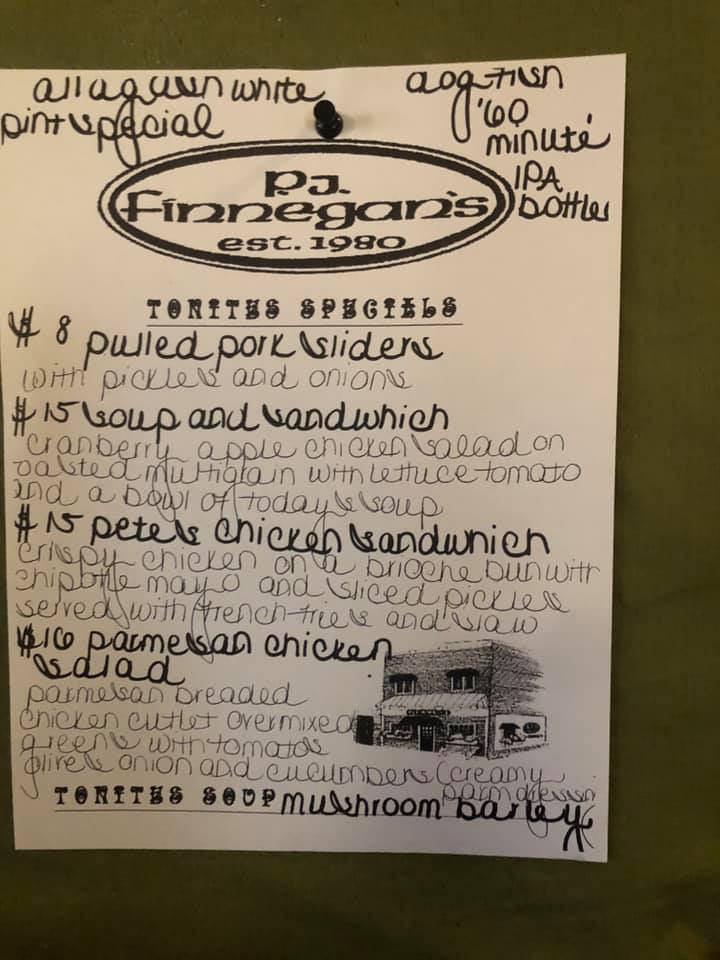 allagash white
pint special
dogfish
'60
minute
IPA
bottles
P.J.
Finnegan's
est. 1980
TONITES SPECIALS
$ 8 pulled pork sliders
with pickles and onions
$15 soup and sandwhich
cranberry apple chicken salad on
oasted multigrain with lettuce tomato
and a bowl of today's soup
$15 pete's chicken sandwhich
crispy chicken on a brioche bun with
chipotle mayo and sliced pickles
served with french fries and slaw
$16 parmesan chicken
salad
parmesan breaded
chicken cutlet over mixed
greens with tomatos
olives onion and cucumbers (creamy
parm dressin
TONITES SOUP mushroom barley